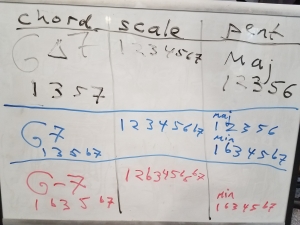 chord scale pent
G△7 1234567 Maj
1 3 5 7 12356
G7 1 2 3 4 5 6 b7 maj
1 3 5 b7 1 2 3 5 6
min
1 b3 4 5 b7
G-7 1 2 b3 4 5 6 b7 min
1 b3 5 b7 1 b3 4 5 b7